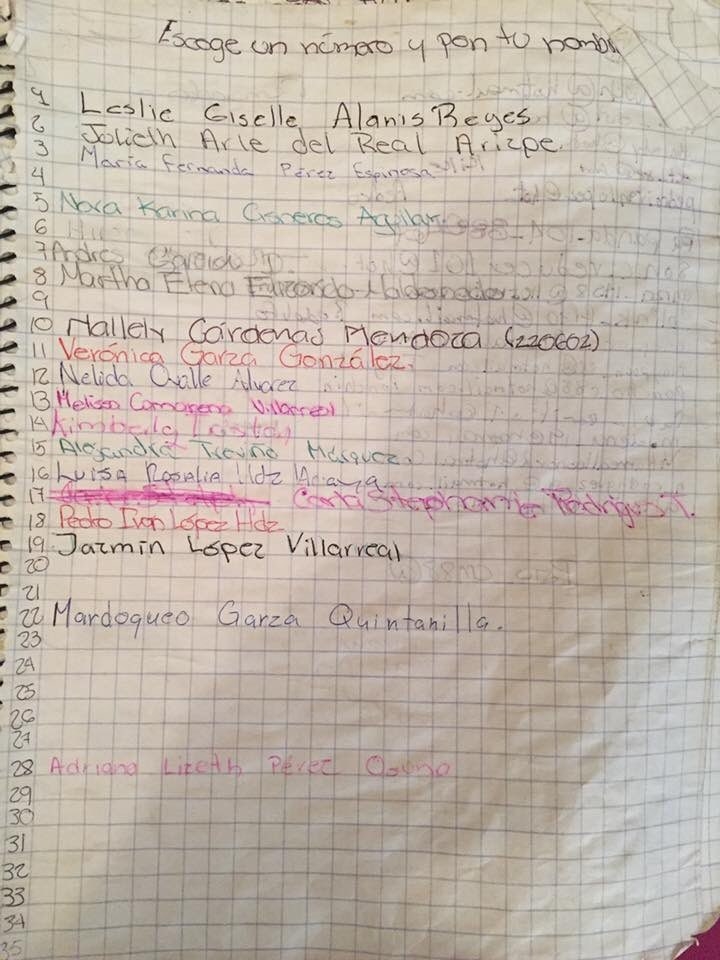 Escoge un número y pon tu nombre
1 Leslie Giselle Alanis Reyes
2 Jolieth Arle del Real Arizpe
3 María Fernanda Pérez Espinosa
4
5 Nora Karina Cisneros Aguilar
6
7 Andres
8 Martha Elena
9
10 Nallely Cárdenas Mendoza (220602)
11 Verónica Garza González.
12 Nelida Ovalle Alvarez
13 Melissa Camarena Villarreal
14 Kimberly
15 Alejandra Treviño Márquez
16 Luisa Rosalia Hdz
17 Carla Stephanie Rodriguez T.
18 Pedro Ivan López Hdz
19 Jazmin López Villarreal
20
21
22 Mardoqueo Garza Quintanilla.
23
24
25
26
27
28 Adriana Lizeth Pérez Osuna
29
30
31
32
33
34
35